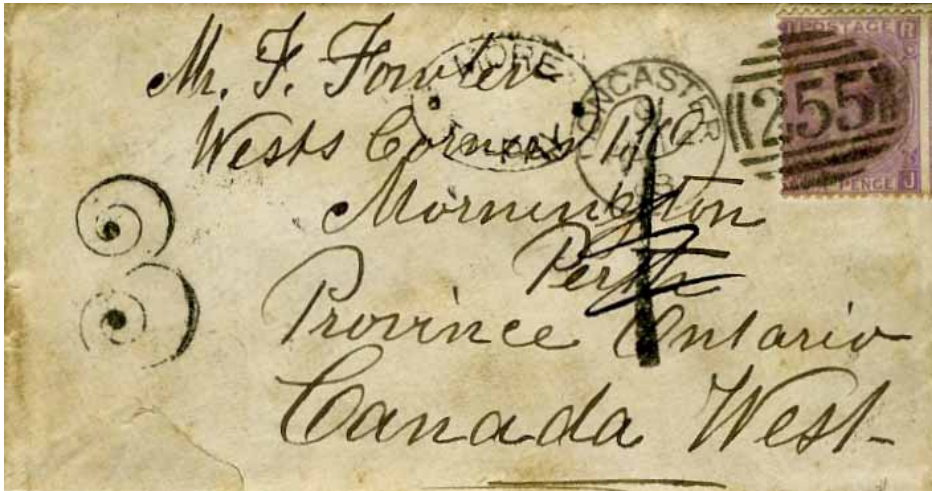 Mr. F. Fowler
Wests Corners P.O.
Mornington
Perth
Province Ontario
Canada West
MORE
TO PAY
DONCASTER
255
POSTAGE
PENCE
R
J
3
1